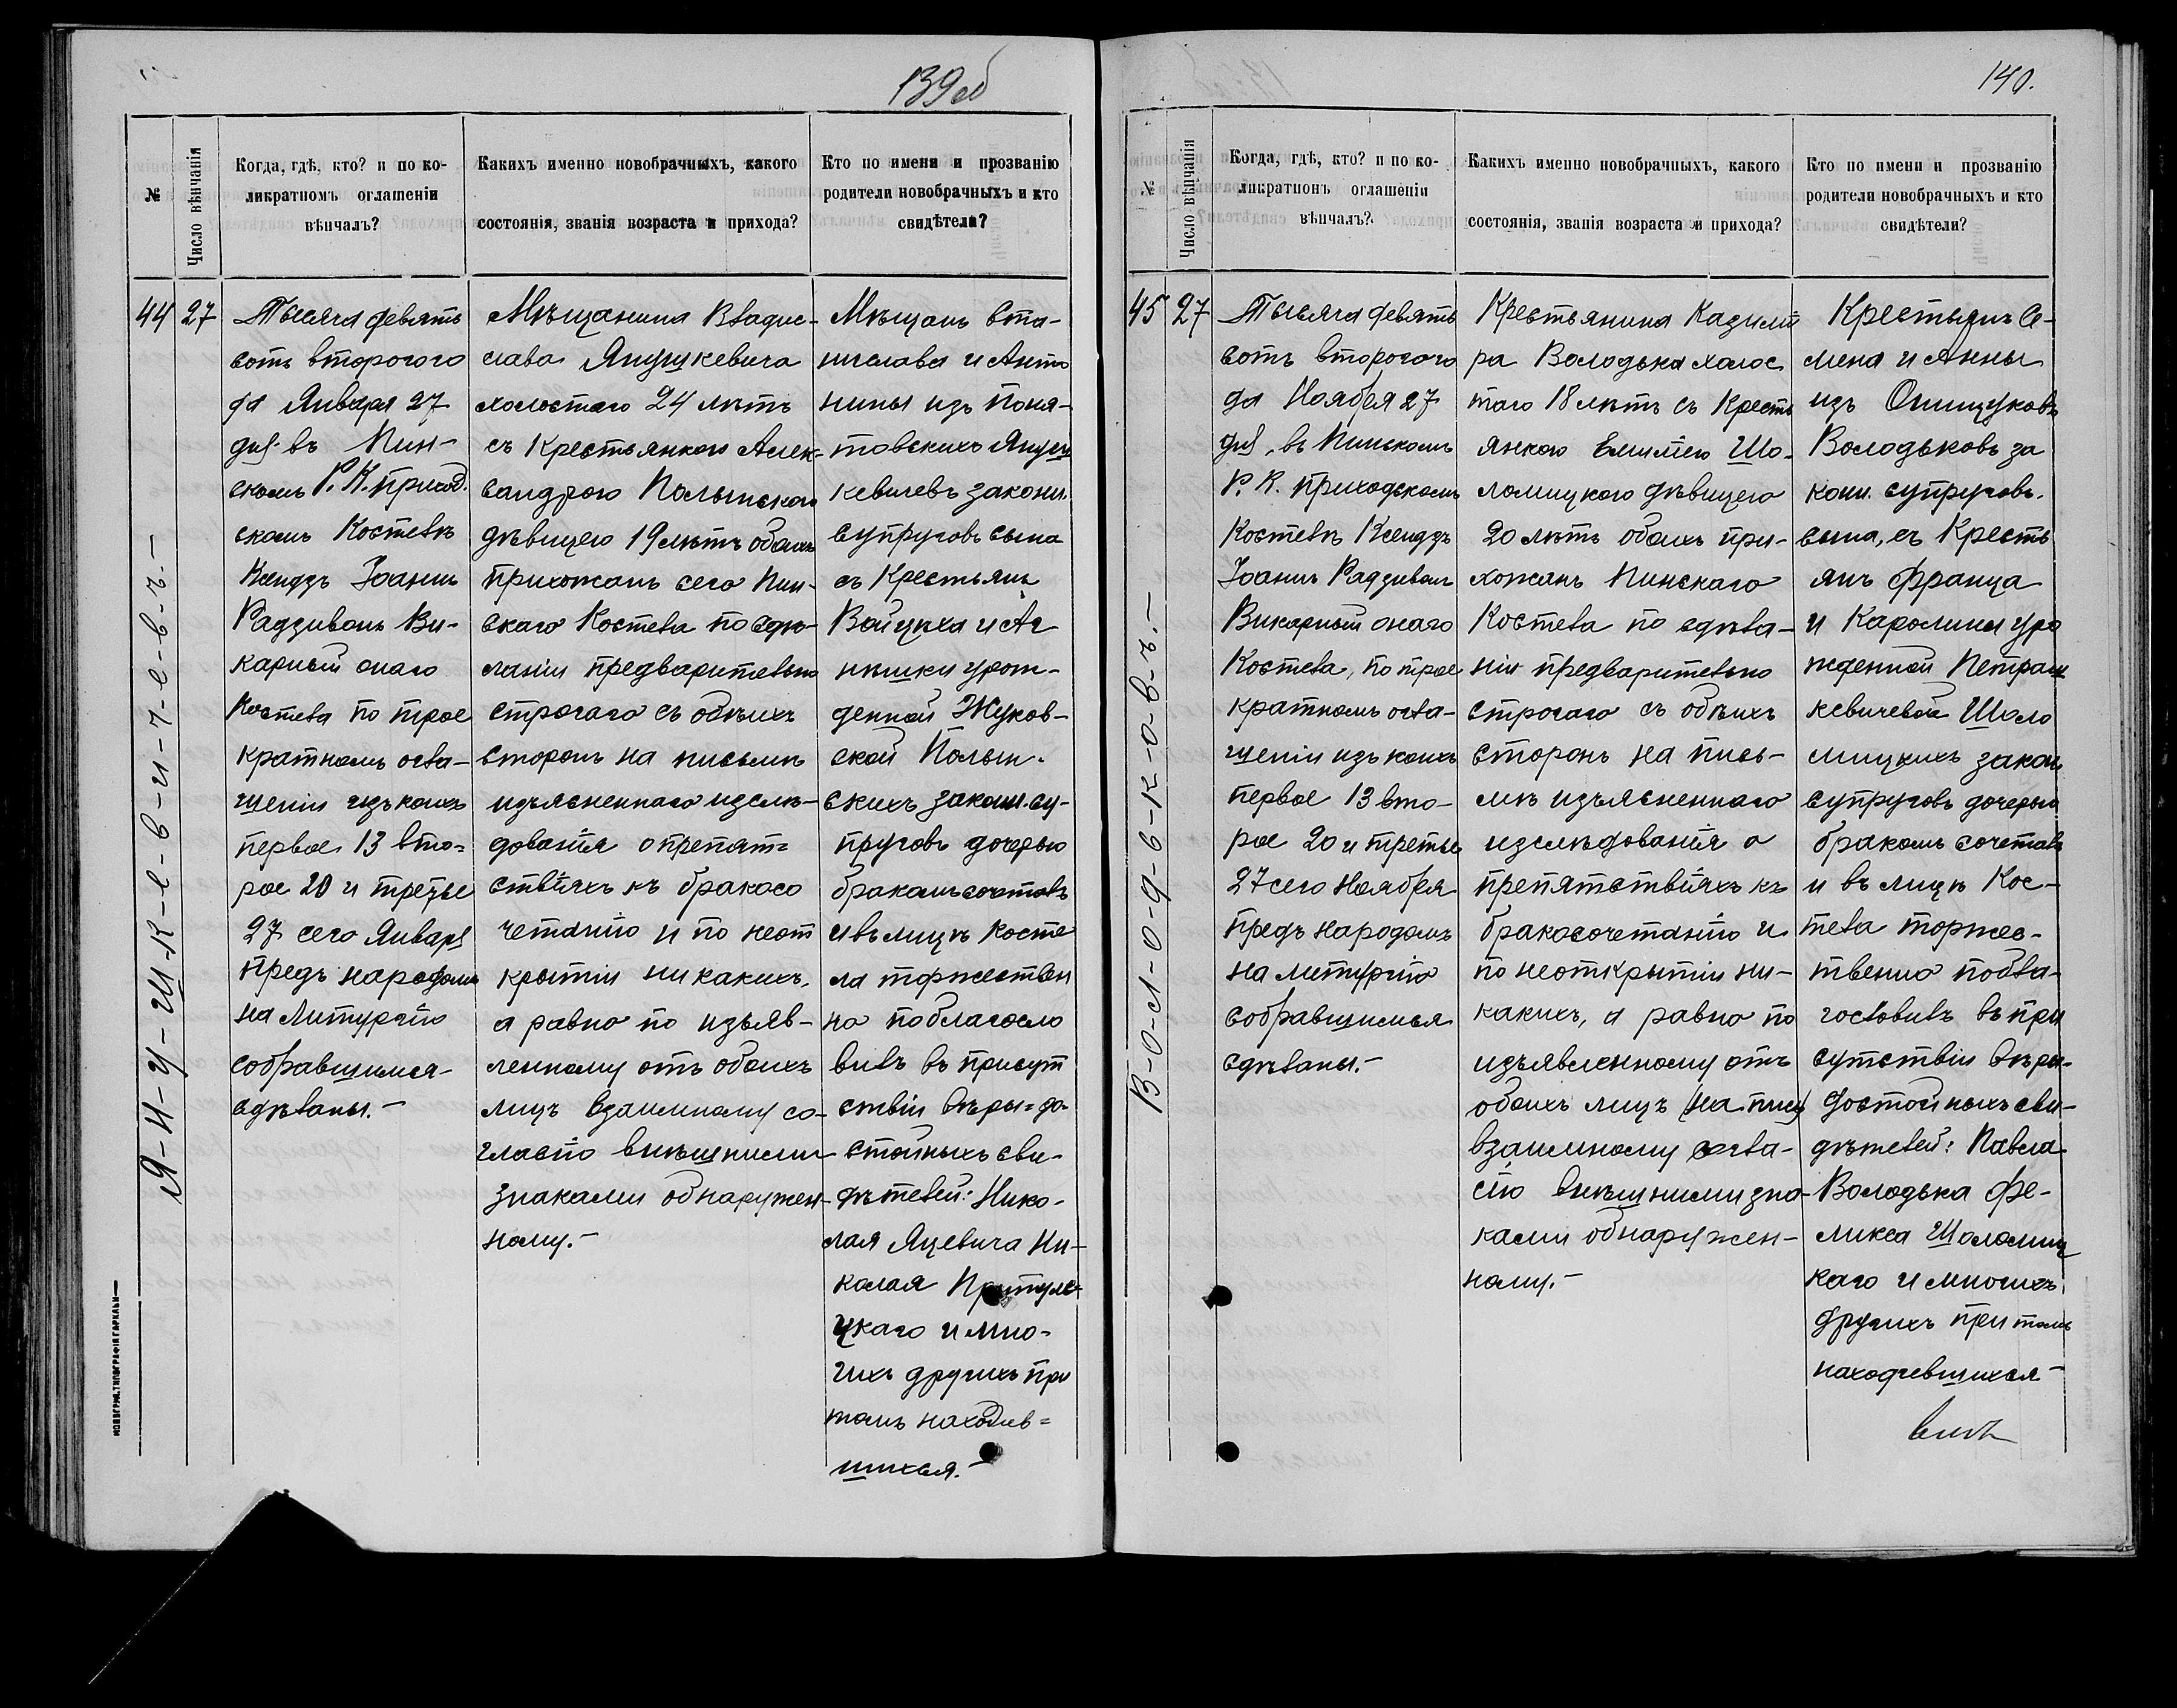 139об
№
Число вѣнчанія
Когда, гдѣ, кто? и по ко-
ликратномъ оглашеніи
вѣнчалъ?
Какихъ именно новобрачныхъ, какого
состоянія, званія возраста и прихода?
Кто по имени и прозванію
родители новобрачныхъ и кто
свидѣтели?
44
27
Я-н-у-ш-к-е-в-и-ч-е-в-ъ.-
Тысяча девять
сотъ второго го
да Января 27
дня въ Пин-
скомъ Р. К. приход.
скомъ Костелѣ
Ксендзъ Іоаннъ
Радзивонъ Ви-
карный онаго
Костела по трое
кратномъ огла-
шеніи изъ коихъ
первое 13 вто-
рое 20 и третье
27 сего Января
предъ народомъ
на Литургію
собравшимся
сдѣланы.-
Мѣщанина Владис-
слава Янушкевича
холостаго 24 лѣтъ
съ Крестьянкою Алек-
сандрою Полынскою
дѣвицею 19 лѣтъ обоихъ
прихожанъ сего Пин-
скаго Костела по сдѣ-
ланіи предварительно
строгаго съ обѣихъ
сторонъ на письмѣ
изъясненнаго изслѣ-
дованія о препят-
ствіяхъ къ бракосо
четанію и по неот
крытіи никакихъ,
а равно по изъяв-
ленному отъ обоихъ
лицъ взаимному со-
гласію внѣшними
знаками обнаружен-
ному.-
Мѣщанъ Ста-
нислава и Анто
нины изъ Поня-
товскихъ Януш
кевичевъ законн.
супруговъ сына
съ Крестьянъ
Войцѣха и Аг
нѣшки урож-
денной Жуков-
ской Полын-
скихъ законн. су-
пруговъ дочерью
бракомъ сочеталъ
и въ лицѣ Косте
ла торжествен
но поблагосло
вилъ въ присут
ствіи вѣры-до-
стойныхъ сви-
дѣтелей: Нико-
лая Яцевича Ни-
колая
цкаго и мно-
гихъ другихъ при
томъ находив-
шихся.-
НОВОГРУД. ТИПОГРАФІЯ ГАРКАВИ
140.
№
Число вѣнчанія
Когда, гдѣ, кто? и по ко-
ликратномъ оглашеніи
вѣнчалъ?
Какихъ именно новобрачныхъ, какого
состоянія, званія возраста и прихода?
Кто по имени и прозванію
родители новобрачныхъ и кто
свидѣтели?
45
27
В-о-л-о-д-ь-к-о-в-ъ.-
Тысяча девять
сотъ второго го
да Ноября 27
дня, въ Пинскомъ
Р. К. приходскомъ
Костелѣ Ксендзъ
Іоаннъ Радзивонъ
Викарный онаго
Костела, по трое
кратномъ огла-
шеніи изъ коихъ
первое 13 вто-
рое 20 и третье
27 сего Ноября
предъ народомъ
на Литургію
собравшимся
сдѣланы.-
Крестьянина Казими
ра Володька холос
таго 18 лѣтъ съ Кресть
янкою Емиліею Шо-
ломицкою дѣвицею
20 лѣтъ обоихъ при-
хожанъ Пинскаго
Костела по сдѣла-
ніи предварительно
строгаго съ обѣихъ
сторонъ на пись-
мѣ изъясненнаго
изслѣдованія о
препятствіяхъ къ
бракосочетанію и
по неоткрытіи ни-
какихъ, а равно по
изъявленному отъ
обоихъ лицъ (на пись)
взаимному согла-
сію внѣшними зна-
ками обнаружен-
ному.-
Крестьянъ Се-
мена и Анны
изъ Онищуковъ
Володьковъ за
конн. супруговъ.
сына, съ Кресть
янъ Франца
и Каролины уро
жденной Петраш
кевичевой Шоло
мицкихъ закон
супруговъ дочерью
бракомъ сочеталъ
и въ лицѣ Кос-
тела торжес-
твенно побла-
гословилъ въ при
сутствіи вѣры-
достойныхъ сви-
дѣтелей: Павла
Володька Фе-
ликса Шоломиц
каго и многихъ
другихъ при томъ
находившихся-